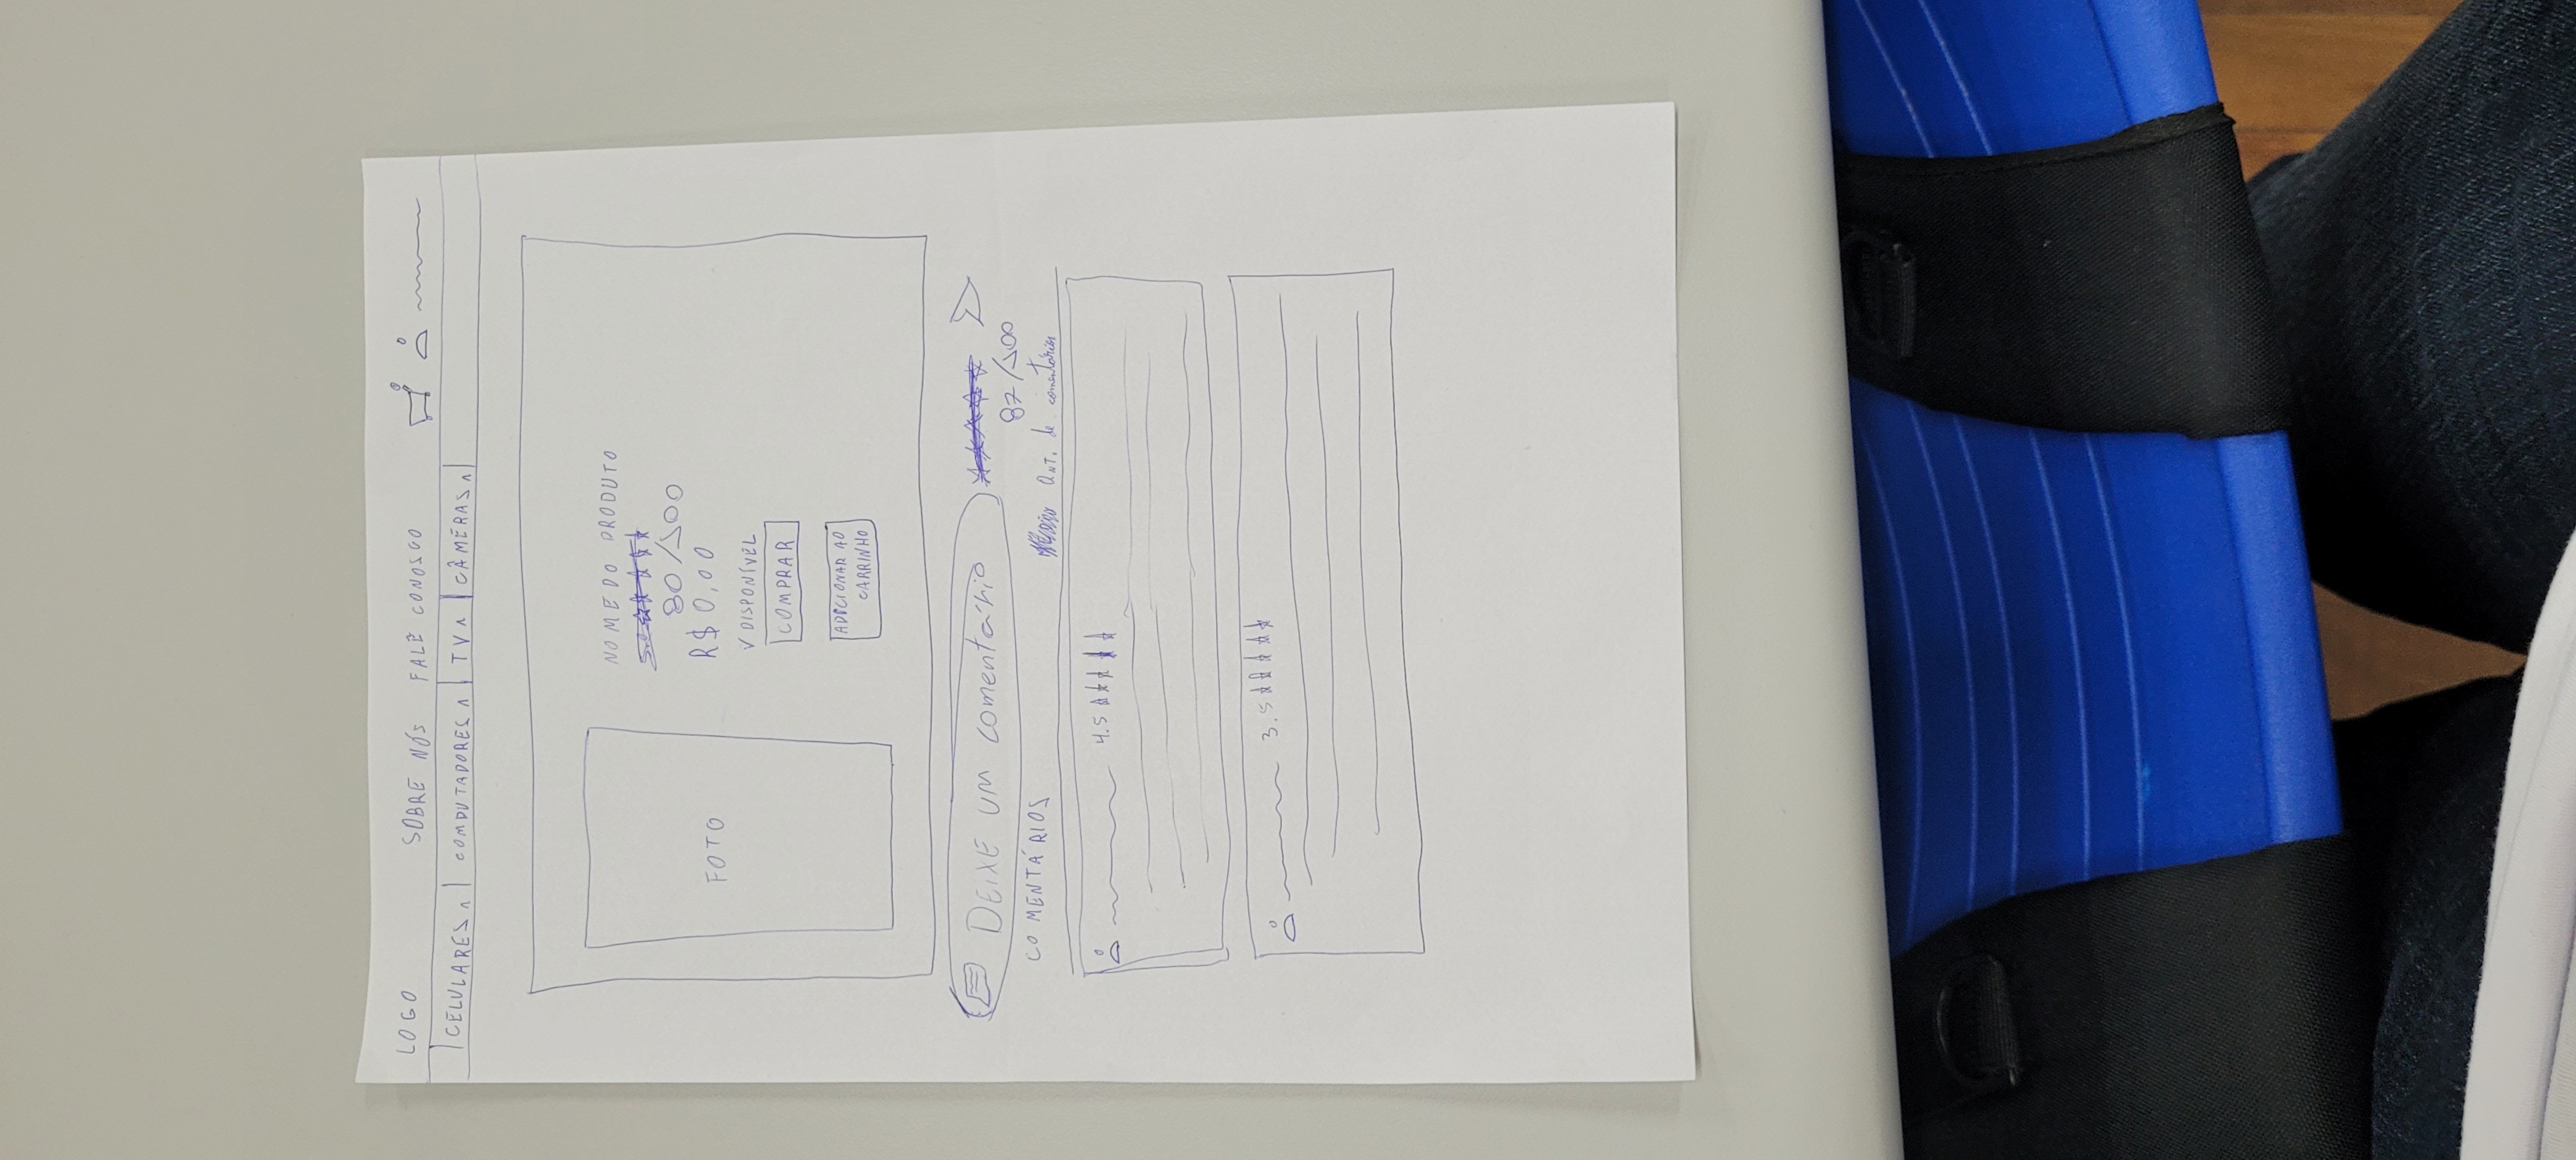 LOGO SOBRE NÓS FALE CONOSCO
CELULARES ^ COMPUTADORES ^ TV ^ CÂMERAS ^
NOME DO PRODUTO
80/100
FOTO
R$ 0,00
✓ DISPONÍVEL
COMPRAR
ADICIONAR AO
CARRINHO
DEIXE UM comentário
87/100
COMENTÁRIOS QNT. de comentários
4.5 ☆☆☆☆☆
3.5 ☆☆☆☆☆